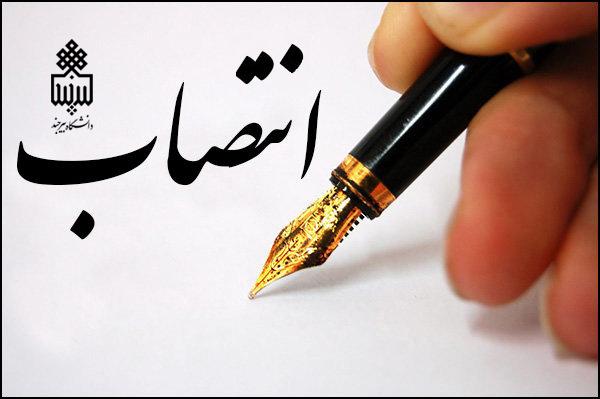 دانشگاه بیرجند
انتصاب